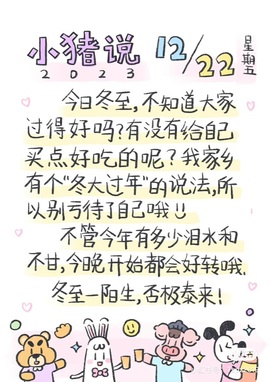 小猪说 12/22 星期五
2023
今日冬至,不知道大家
过得好吗?有没有给自己
买点好吃的呢?我家乡
有个"冬大过年"的说法,所
以别亏待了自己哦
不管今年有多少泪水和
不甘,今晚开始都会好转哦.
冬至一阳生,否极泰来!